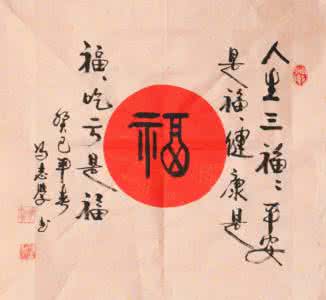 人生三福：平安
是福、健康是
福
福、吃亏是福
癸巳年春
冯志学书